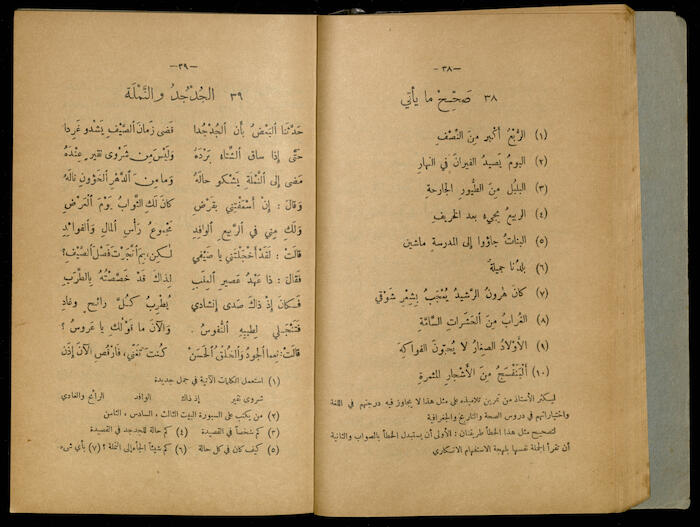 — ٣٨ —
٣٨ صَحِّحْ ما يأتي
(١) الرُّبْعُ أكْبَر مِنَ النِّصْفِ
(٢) البومُ يَصيدُ الفيرانَ في النهارِ
(٣) البلبلُ مِنَ الطُّيورِ الجارحةِ
(٤) الربيعُ يجيءُ بعد الخريفِ
(٥) البناتُ جاؤوا إلى المدرسةِ ماشين
(٦) بلدُنا جميلةٌ
(٧) كانَ هٰرونُ الرشيدُ يُعْجَبُ بِشِعْرِ شَوْقي
(٨) الغُرابُ مِنَ الحَشَراتِ السَّامَّةِ
(٩) الأوْلادُ الصِغارُ لا يُحِبّونَ الفواكِهَ
(١٠) ألبَنَفْسَجُ مِنَ الأشْجارِ المثمرةِ
ليسكثر الأستاذ من تمرين تلاميذه على مثل هذا لا يجاوز فيه درجتهم في اللغة
واختباراتهم في دروس الصحة والتاريخ والجغرافية
لتصحيح مثل هذا الخطأ طريقتان : الأولى أن يستبدل الخطأ بالصواب والثانية
أن تقرأ الجملة نفسها بلهجة الاستفهام الانكاري
— ٣٩ —
٣٩ الجُدْجُدُ والنَّمْلَة
حَدَّثَنا ٱلبَعْضُ بأن ٱلجُدْجُدا قضى زَمانَ الصَّيْفِ يَشْدو غَرِدا
حَتَّى إذا ساق ٱلشِّتاءُ بَرْدَهُ وَلَيْسَ مِن شَرْوى نقيرٍ عِنْدَهُ
مَضى إلى ٱلنَّمْلَةِ يَشْكو حالَهُ وما مِنَ ٱلدَّهْرِ ٱلخَؤونِ نالَهُ
وقالَ : إنْ أَسْعَفْتِني بقَرْضِ كانَ لَكِ ٱلثَّوابُ يَوْمَ ٱلعَرْضِ
وَلَكِ مِنّي في ٱلرَّبيعِ ٱلوافِدِ مجموعُ رَأْسِ المالِ وٱلفوائِدِ
قالتْ : لَقَدْ أَخْجَلْتَني يا ضَيْفي لٰكِن، بِمَ ٱتَّجَرْتَ فَصْلَ ٱلصَّيْفِ؟
فَقالَ : ذا عَهْدُ عَصيرِ ٱلعِنَبِ لذاكَ قد خَصَّصْتُهُ بِالطَّرَبِ
فَكانَ إذ ذاكَ صَدى إنشادي يُطْرِبُ كُلَّ رائحٍ وغادِ
فَتَنْجَلي لِطيبِهِ ٱلنُّفوسُ . وَالآنَ ما قَوْلُكِ يا عَروسُ ؟
قالتْ: نِعِما ٱلجودُ وَٱلخُلْقُ ٱلحَسَنْ كُنْتَ تُغَنّي، فَٱرْقُصِ الآنَ إذَنْ
(١) استعمل الكلمات الآتية في جمل جديدة
شروى نقير إذ ذاك الوافد الرائح والغادي
(٢) من يكتب على السبورة البيت الثالث ، السادس ، الثامن
(٣) كم شخصاً في القصيدة (٤) كم حالة للجدجد في القصيدة
(٥) كيف كان في كل حالة (٦) كم شيئاً الجأه إلى النملة ؟ (٧) بأي شيء